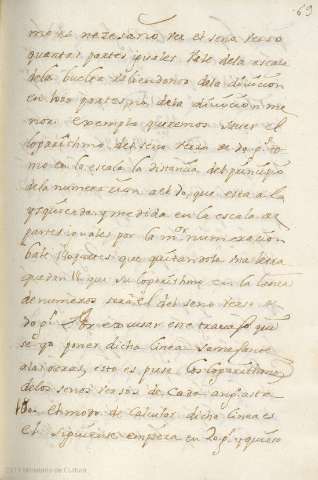 69
mos nezesario ver el seno verso
quantas partes iguales vale de la escala
de la buelta sirbiendonos de la diuiçion
en 100 partes no de la diuiçion me
nor exemplo queremos sauer el
logarithmo del seno verso de 20 gs. to
mo en la escala la distançia del prinçipio
de la numeraçion al 20, que esta a la
yzquierda y medida en la escala de
partes iguales por la mor. numeraçion
vale que quitandole una letra
quedan que su logarithmo en la linea
de numeros sera el del seno verso de
20 gs. Por excusar este trauajo que
se yo poner dicha linea semejante
a las otras, esto es puse los logarithmos
de los senos versos de cada ang. asta
180. el modo de calcular dicha linea es
el siguiente. empeza en 20 gs. y quiero
2019 Ministerio de Cultura